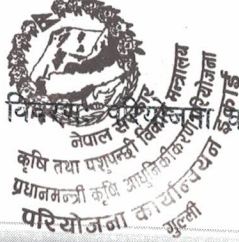 नेपाल सरकार
कृषि तथा पशुपन्छी विकास मन्त्रालय
प्रधानमन्त्री कृषि आधुनिकीकरण परियोजना
परियोजना कार्यान्वयन इकाई
गुल्मी